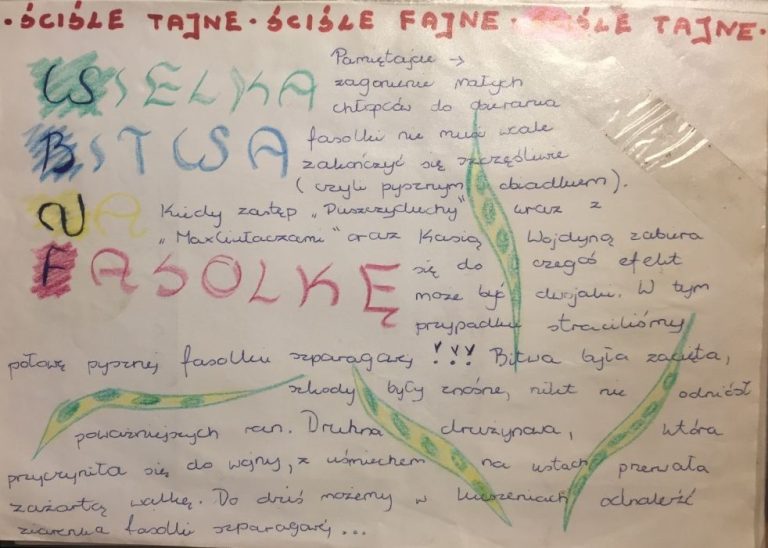 ·ŚCIŚLE TAJNE·ŚCIŚLE FAJNE·ŚCIŚLE TAJNE·
WIELKA
BITWA
NA
FASOLKĘ
Pamiętajcie →
zagonienie małych
chłopców do obierania
fasolki nie musi wcale
zakończyć się szczęśliwie
(czyli pysznym obiadkiem).
Kiedy zastęp „Duszczyduchy" wraz z
„MaxCiułaczami" oraz Kasią Wojdyną zabiera
się do czegoś efekt
może być dwojaki. W tym
przypadku straciliśmy
połowę pysznej fasolki szparagowej !!! Bitwa była zacięta,
szkody były znośne, nikt nie odniósł
poważniejszych ran. Druhna drużynowa, która
przyczyniła się do wojny, z uśmiechem na ustach przerwała
zażartą walkę. Do dziś możemy w kieszeniach odnaleźć
ziarenka fasolki szparagowej...